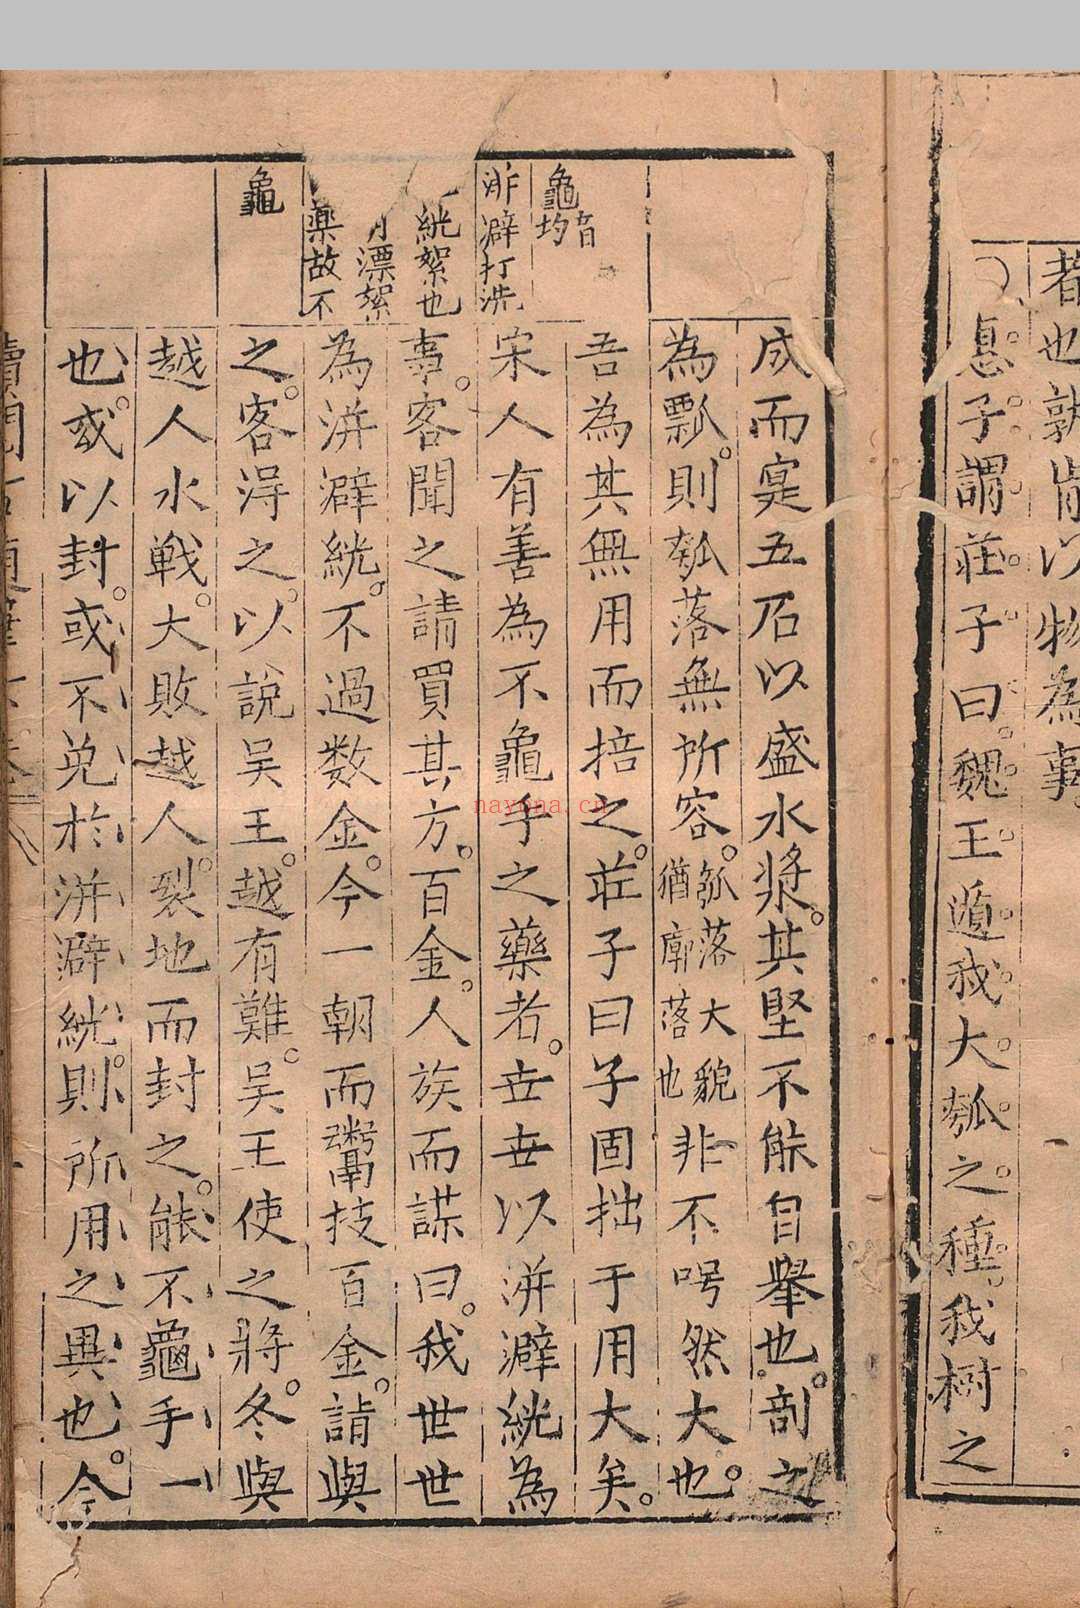 者也孰肯以物為事
惠子謂莊子曰魏王遁我大瓠之種我樹之
成而寔五石以盛水漿其堅不能自舉也剖之
為瓢則瓠落無所容瓠落大貌猶廓落也非不呺然大也
吾為其無用而掊之莊子曰子固拙于用大矣
宋人有善為不龜手之藥者世世以洴澼絖為
事客聞之請買其方百金人族而謀曰我世世
為洴澼絖不過数金今一朝而鬻技百金請與
之客淂之以說吴王越有難吴王使之將冬與
越人水戰大敗越人裂地而封之能不龜手一
也或以封或不免於洴澼絖則所用之異也今
龜音均
洴澼打洗
絖絮也
漂絮
藥故不
龜
nayona.cn